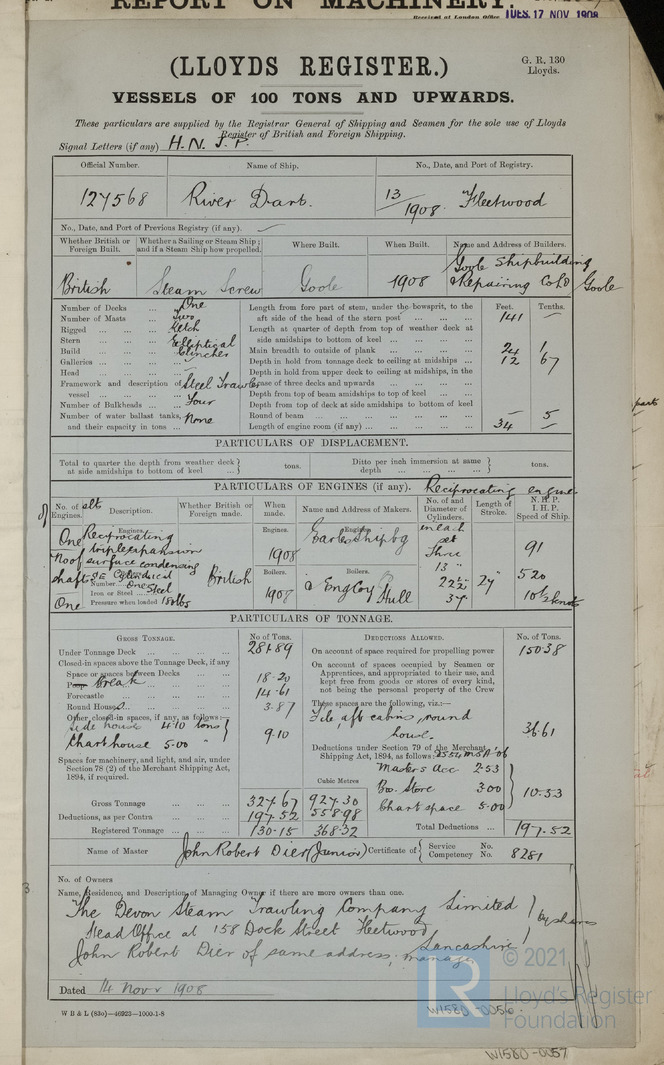 REPORT ON MACHINERY.
Received at London Office TUES. 17 NOV 1908
(LLOYDS REGISTER.)
G. R. 130
Lloyds.
VESSELS OF 100 TONS AND UPWARDS.
These particulars are supplied by the Registrar General of Shipping and Seamen for the sole use of Lloyds
Register of British and Foreign Shipping.
Signal Letters (if any) H.N.J.P.
Official Number. Name of Ship. No., Date, and Port of Registry.
127568 River Dart. 13/1908 Fleetwood
No., Date, and Port of Previous Registry (if any). —
Whether British or Foreign Built. Whether a Sailing or Steam Ship; and if a Steam Ship how propelled. Where Built. When Built. Name and Address of Builders.
British Steam Screw Goole 1908 Goole Shipbuilding & Repairing Co Ld Goole
Number of Decks ... One
Number of Masts ... Two
Rigged ... Ketch
Stern ... Elliptical
Build ... Clincher
Galleries ... —
Head ... —
Framework and description of vessel ... Steel Trawler
Number of Bulkheads ... Four
Number of water ballast tanks, and their capacity in tons ... None
Feet. Tenths.
Length from fore part of stem, under the bowsprit, to the aft side of the head of the stern post ... 141 —
Length at quarter of depth from top of weather deck at side amidships to bottom of keel ...
Main breadth to outside of plank ... 24 1
Depth in hold from tonnage deck to ceiling at midships ... 12 67
Depth in hold from upper deck to ceiling at midships, in the case of three decks and upwards ...
Depth from top of beam amidships to top of keel ...
Depth from top of deck at side amidships to bottom of keel
Round of beam ... — 5
Length of engine room (if any) ... 34 —
PARTICULARS OF DISPLACEMENT.
Total to quarter the depth from weather deck at side amidships to bottom of keel ... tons.
Ditto per inch immersion at same depth ... tons.
PARTICULARS OF ENGINES (if any). Reciprocating engine
No. of Engines. Description. Whether British or Foreign made. When made. Name and Address of Makers. No. of and Diameter of Cylinders. Length of Stroke. N.H.P. I.H.P. Speed of Ship.
One
No of shafts
One
Engines.
Reciprocating triple expansion surface condensing
S.E. Cylindrical
Number ... One
Iron or Steel ... Steel
Pressure when loaded 180 lbs
British
Engines.
1908
Boilers.
1908
Engines.
Earles Shipbg
Boilers.
& Eng Coy Hull
in each set
Three
13"
22½"
37"
24"
91
520
10½ knots
PARTICULARS OF TONNAGE.
GROSS TONNAGE. No of Tons.
Under Tonnage Deck ... 281.89
Closed-in spaces above the Tonnage Deck, if any
Space or spaces between Decks ...
Poop Break ... 18.20
Forecastle ... 14.61
Round House ... 3.87
Other closed-in spaces, if any, as follows:—
Side house 4.10 tons
Chart house 5.00 "
9.10
Spaces for machinery, and light, and air, under Section 78 (2) of the Merchant Shipping Act, 1894, if required.
Cubic Metres
Gross Tonnage ... 327.67 927.30
Deductions, as per Contra ... 197.52 558.98
Registered Tonnage ... 130.15 368.32
DEDUCTIONS ALLOWED. No. of Tons.
On account of space required for propelling power 150.38
On account of spaces occupied by Seamen or Apprentices, and appropriated to their use, and kept free from goods or stores of every kind, not being the personal property of the Crew
These spaces are the following, viz.:—
F'cle, aft cabins, round house.
36.61
Deductions under Section 79 of the Merchant Shipping Act, 1894, as follows:
Master's Acc 2.53
Bo. Store 3.00
Chart space 5.00
10.53
Total Deductions ... 197.52
Name of Master John Robert Dier (Junior) Certificate of Service No. Competency No. 8281
No. of Owners
Name, Residence, and Description of Managing Owner if there are more owners than one.
The Devon Steam Trawling Company Limited
Head Office at 158 Dock Street Fleetwood,
Lancashire
by shares
John Robert Dier of same address; manager
Dated 14 Novr 1908
W B & L (83o)—46923—1000-1-8
© 2021
Lloyd's Register
Foundation
W1580-0056
W1580-0057